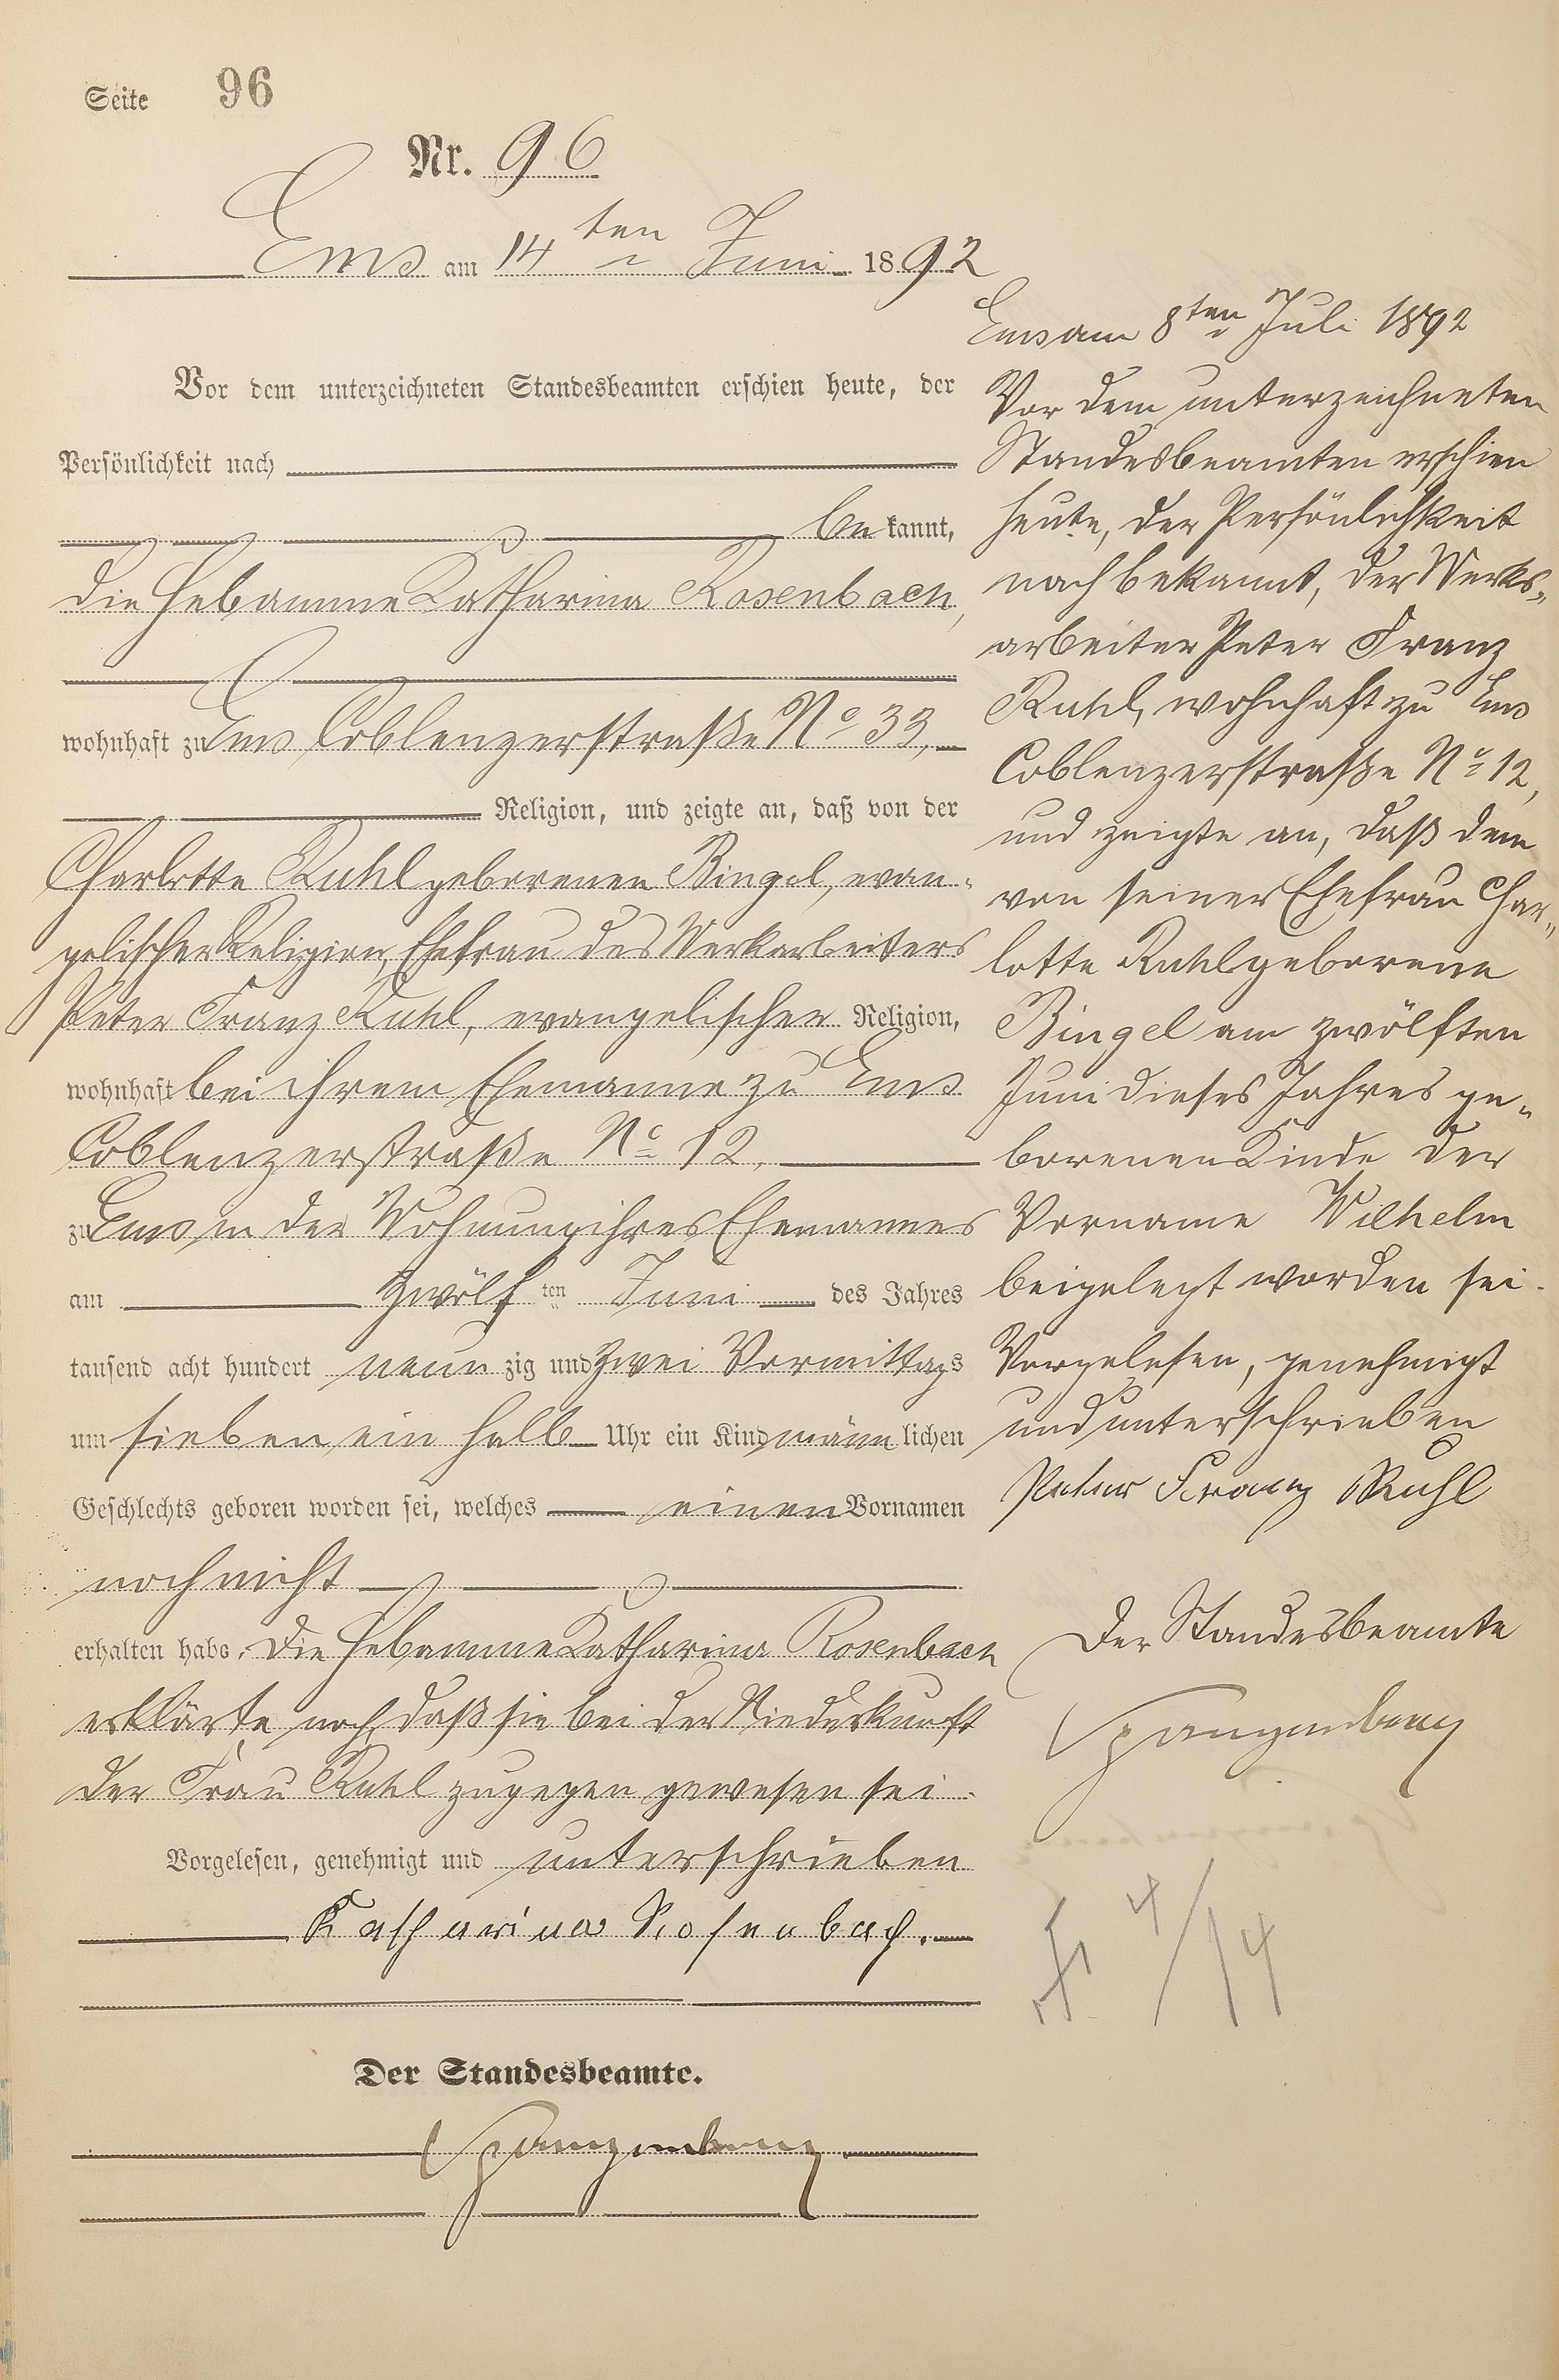 Seite 96
Nr. 96
Ems am 14ten Juni 1892
Vor dem unterzeichneten Standesbeamten erschien heute, der
Persönlichkeit nach
bekannt,
die Hebamme Katharina Rosenbach,
wohnhaft zu Ems Coblenzerstraße No 33,
Religion, und zeigte an, daß von der
Charlotte Ruhl geborenen Bingel, evan-
gelischer Religion, Ehefrau des Werkarbeiters
Peter Franz Ruhl, evangelischer Religion,
wohnhaft bei ihrem Ehemanne zu Ems
Coblenzerstraße No 12,
zu Ems in der Wohnung ihres Ehemannes
am zwölften Juni des Jahres
tausend acht hundert neunzig und zwei Vormittags
um sieben ein halb Uhr ein Kind männlichen
Geschlechts geboren worden sei, welches einen Vornamen
noch nicht
erhalten habe. Die Hebamme Katharina Rosenbach
erklärte noch, daß sie bei der Niederkunft
der Frau Ruhl zugegen gewesen sei.
Vorgelesen, genehmigt und unterschrieben
Katharina Rosenbach.
Der Standesbeamte.
Spangenberg
Ems am 8ten Juli 1892
Vor dem unterzeichneten
Standesbeamten erschien
heute, der Persönlichkeit
nach bekannt, der Werks-
arbeiter Peter Franz
Ruhl, wohnhaft zu Ems
Coblenzerstraße No 12,
und zeigte an, daß dem
von seiner Ehefrau Char-
lotte Ruhl geborene
Bingel am zwölften
Juni dieses Jahres ge-
borenen Kinde der
Vorname Wilhelm
beigelegt worden sei.
Vorgelesen, genehmigt
und unterschrieben
Peter Franz Ruhl
Der Standesbeamte
Spangenberg
4/14